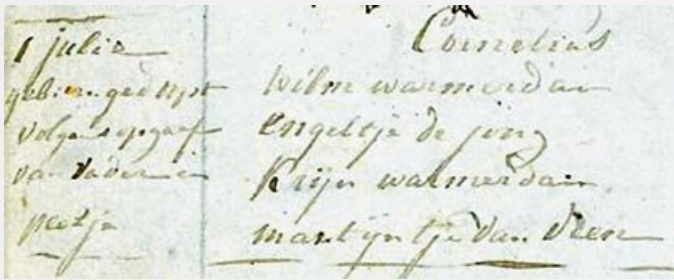 1 julie
geb: en gedoopt
volgens opgaaf
van vader en
peetje
Cornelius
wilm warmerdam
Engeltje de jong
Krijn warmerdam
martijntje van Veen